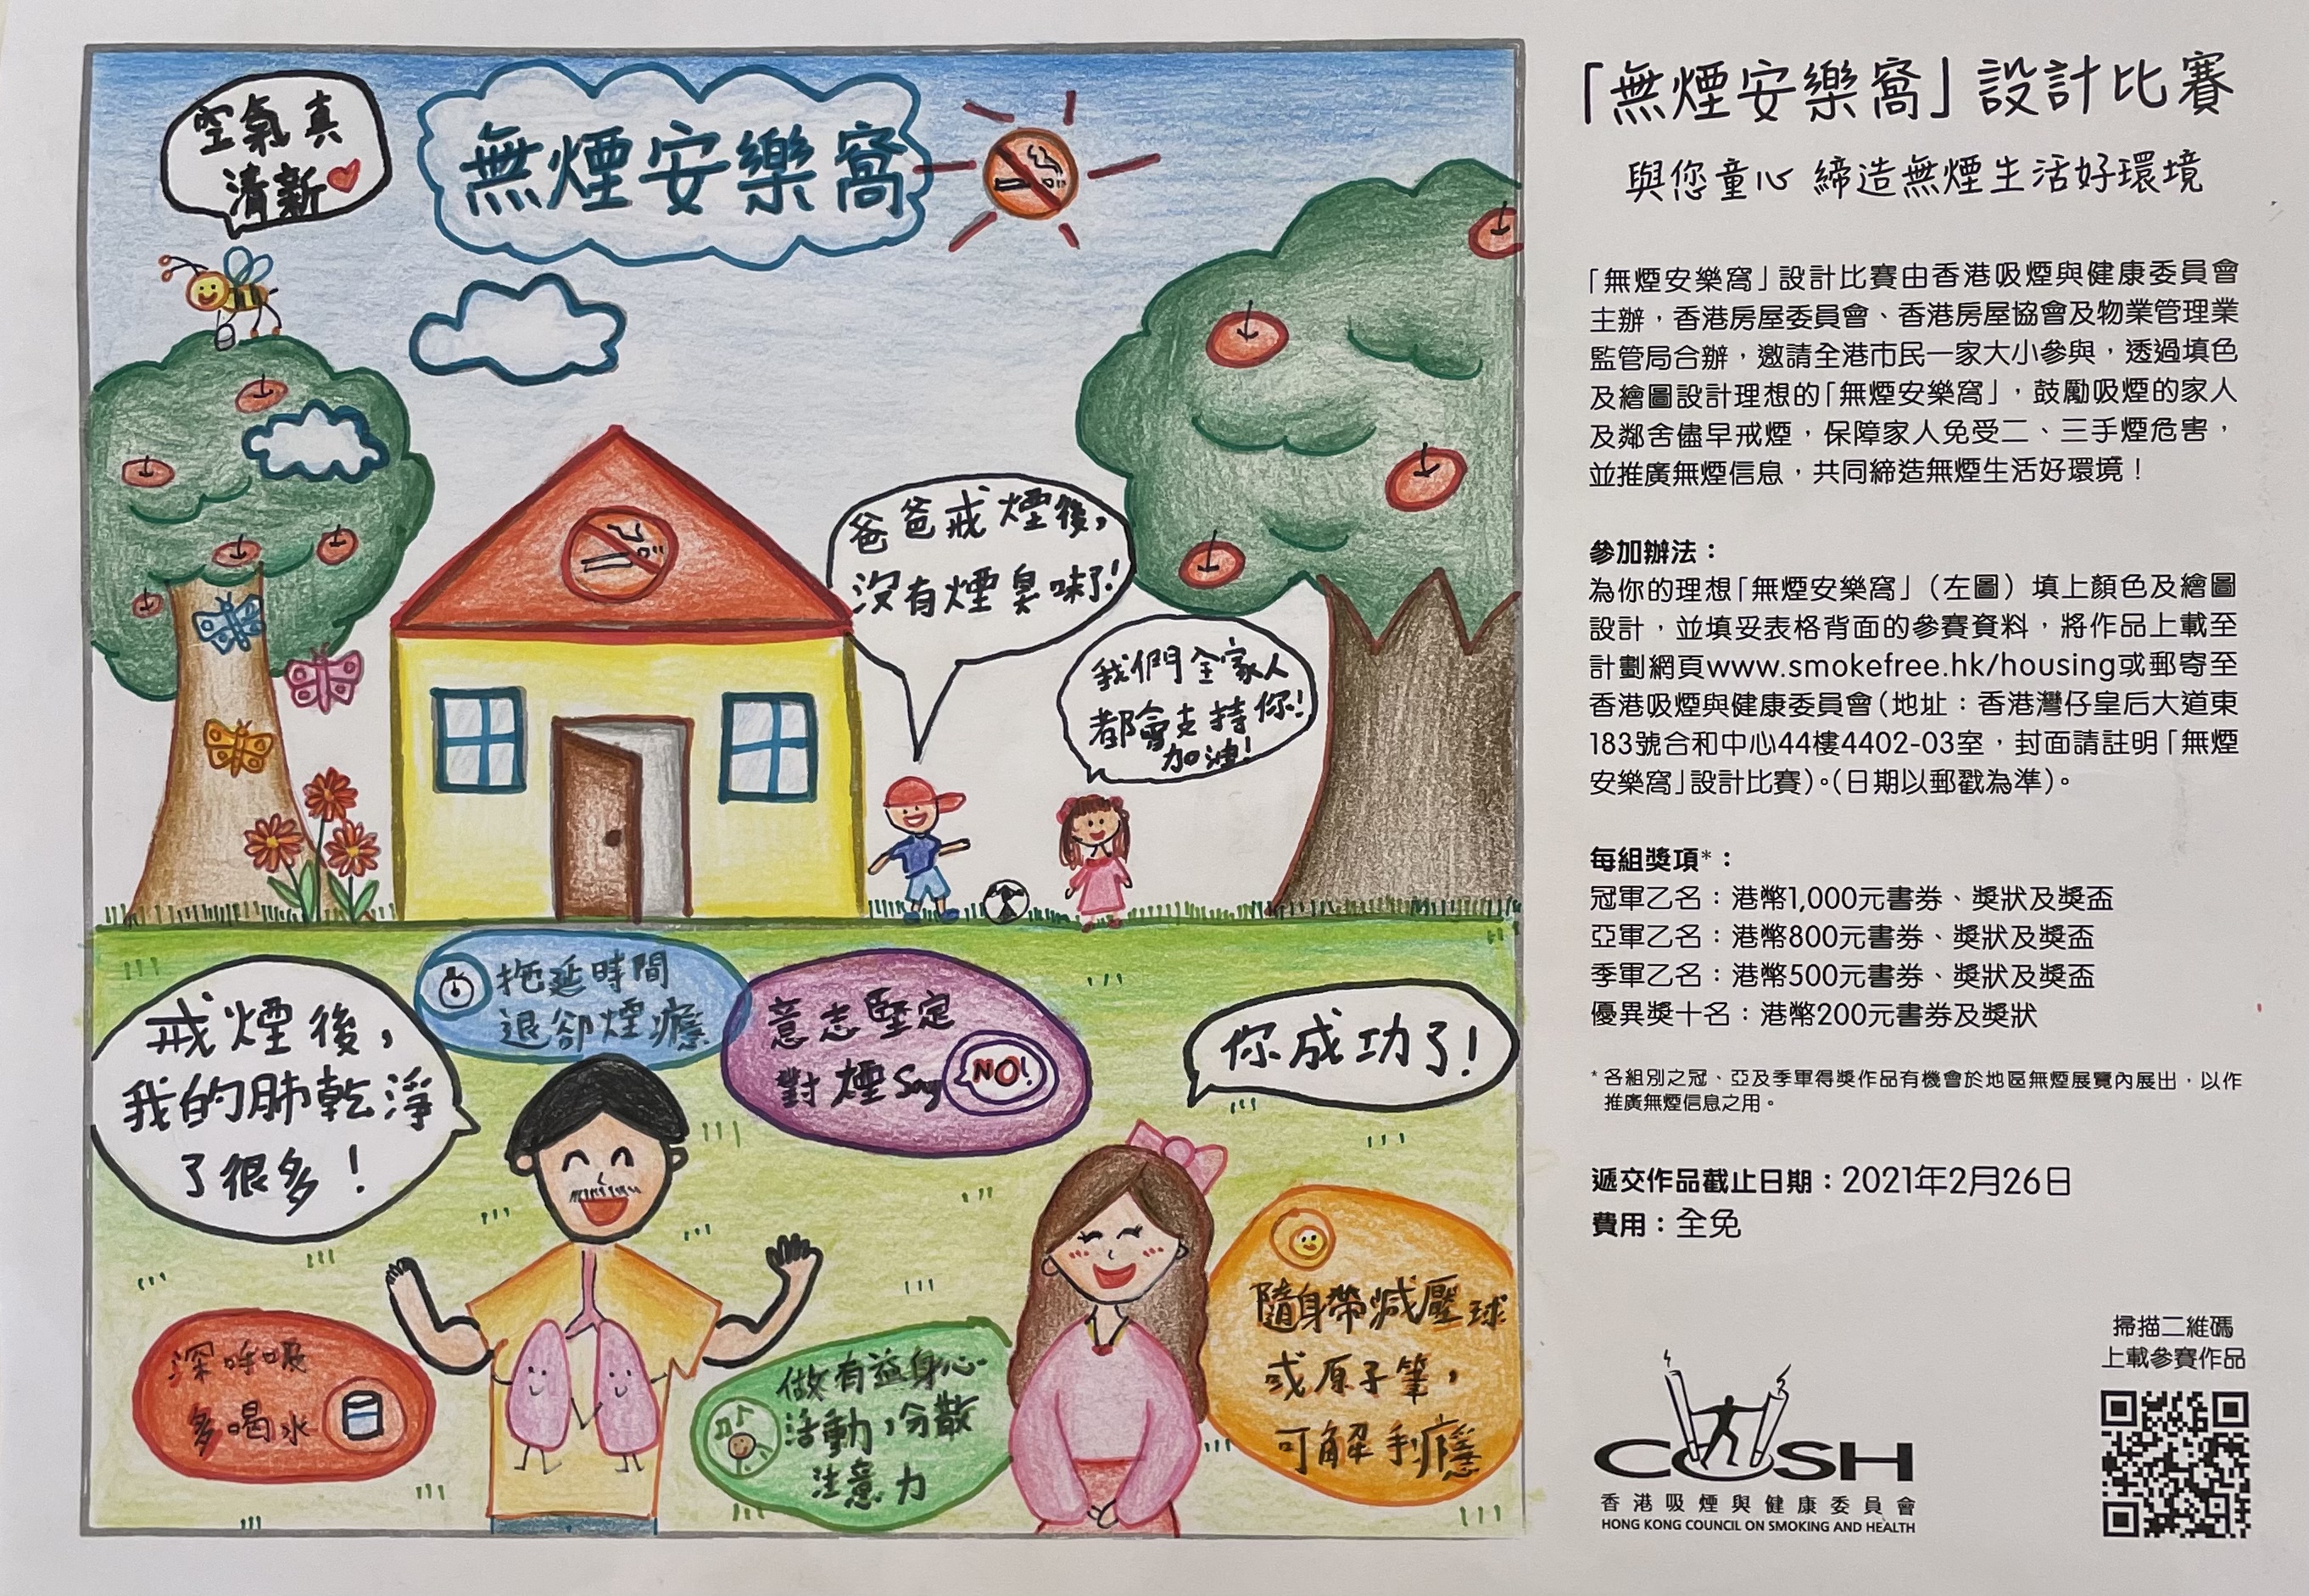 空氣真
清新
無煙安樂窩
爸爸戒煙後,
沒有煙臭味了!
我們全家人
都會支持你!
加油!
戒煙後,
我的肺乾淨
了很多!
拖延時間
退卻煙癮
意志堅定
對煙Say NO!
你成功了!
深呼吸
多喝水
做有益身心
活動,分散
注意力
隨身帶減壓球
或原子筆,
可解手癮
「無煙安樂窩」設計比賽
與您童心 締造無煙生活好環境
「無煙安樂窩」設計比賽由香港吸煙與健康委員會
主辦，香港房屋委員會、香港房屋協會及物業管理業
監管局合辦，邀請全港市民一家大小參與，透過填色
及繪圖設計理想的「無煙安樂窩」，鼓勵吸煙的家人
及鄰舍儘早戒煙，保障家人免受二、三手煙危害，
並推廣無煙信息，共同締造無煙生活好環境！
參加辦法：
為你的理想「無煙安樂窩」（左圖）填上顏色及繪圖
設計，並填妥表格背面的參賽資料，將作品上載至
計劃網頁www.smokefree.hk/housing或郵寄至
香港吸煙與健康委員會（地址：香港灣仔皇后大道東
183號合和中心44樓4402-03室，封面請註明「無煙
安樂窩」設計比賽）。（日期以郵戳為準）。
每組獎項*：
冠軍乙名：港幣1,000元書券、獎狀及獎盃
亞軍乙名：港幣800元書券、獎狀及獎盃
季軍乙名：港幣500元書券、獎狀及獎盃
優異獎十名：港幣200元書券及獎狀
*各組別之冠、亞及季軍得獎作品有機會於地區無煙展覽內展出，以作
推廣無煙信息之用。
遞交作品截止日期：2021年2月26日
費用：全免
掃描二維碼
上載參賽作品
COSH
香港吸煙與健康委員會
HONG KONG COUNCIL ON SMOKING AND HEALTH